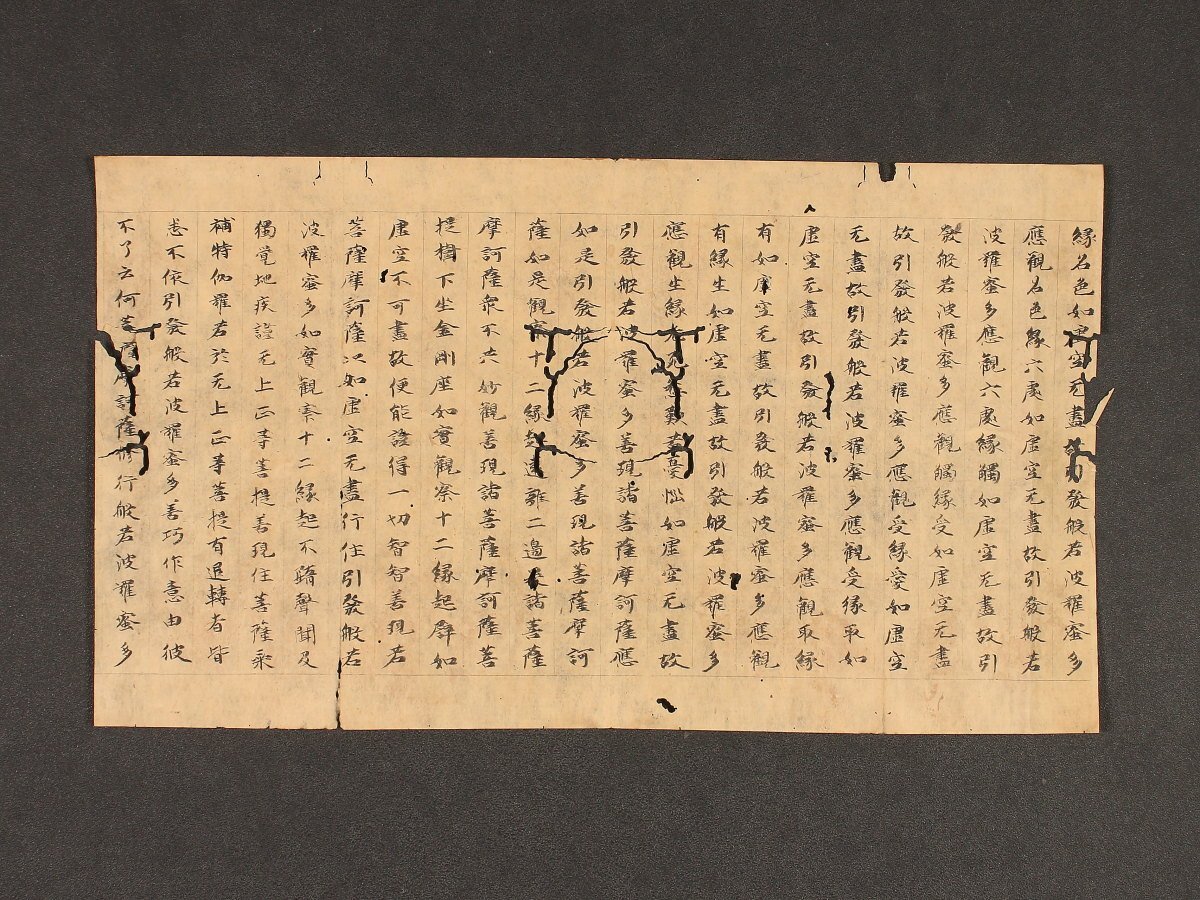 縁名色如虚空无盡發般若波羅蜜多
應觀名色縁六處如虚空无盡故引發般若
波羅蜜多應觀六處縁觸如虚空无盡故引
發般若波羅蜜多應觀觸縁受如虚空无盡
故引發般若波羅蜜多應觀受縁愛如虚空
无盡故引發般若波羅蜜多應觀受縁取如
虚空无盡故引發般若波羅蜜多應觀取縁
有如虚空无盡故引發般若波羅蜜多應觀
有縁生如虚空无盡故引發般若波羅蜜多
應觀生縁老死愁歎苦憂惱如虚空无盡故
引發般若波羅蜜多善現諸菩薩摩訶薩應
如是引發般若波羅蜜多善現諸菩薩摩訶
薩如是觀察十二縁起遠離二邊是諸菩薩
摩訶薩衆不共妙觀善現諸菩薩摩訶薩菩
提樹下坐金剛座如實觀察十二縁起辟如
虚空不可盡故便能證得一切智智善現若
菩薩摩訶薩以如虚空无盡行住引發般若
波羅蜜多如實觀察十二縁起不墮聲聞及
獨覺地疾證无上正等菩提善現住菩薩乘
補特伽羅若於无上正等菩提有退轉者皆
悉不依引發般若波羅蜜多善巧作意由彼
不了云何菩薩摩訶薩修行般若波羅蜜多